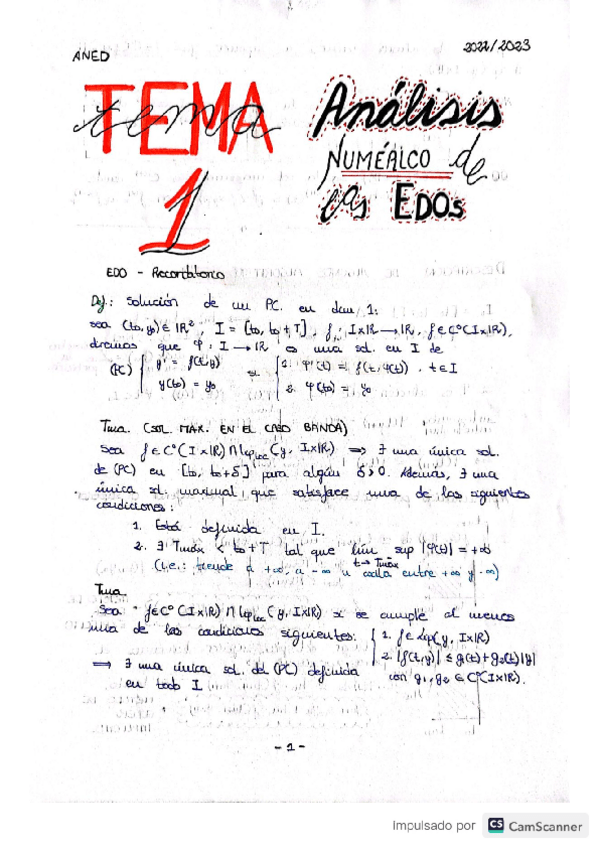 ANED
2022/2023
TEMA
tema
1
Análisis
NUMÉRICO de
las EDOs
EDO - Recordatorio
Def.: Solución de un PC. en dim 1:
sea (t₀,y₀) ∈ ℝ², I = [t₀, t₀+T], f: I×ℝ → ℝ, f ∈ C⁰(I×ℝ),
diremos que φ: I → ℝ es una sol. en I de
(PC) { y' = f(t,y) si { 1. φ'(t) = f(t, φ(t)) . t ∈ I
y(t₀) = y₀ 2. φ(t₀) = y₀
Tma. (SOL. MAX. EN EL CASO BANDA)
Sea f ∈ C⁰(I×ℝ) ∩ Lip_loc(y, I×ℝ) ⟹ ∃ una única sol.
de (PC) en [t₀, t₀+δ] para algún δ>0. Además, ∃ una
única sol. maximal, que satisface una de las siguientes
condiciones:
1. Está definida en I.
2. ∃ Tmáx < t₀+T tal que lím sup |φ(t)| = +∞
t→Tmáx
(i.e.: tiende a +∞, a -∞ u oscila entre +∞ y -∞)
Tma.
Sea f ∈ C⁰(I×ℝ) ∩ Lip_loc(y, I×ℝ) si se cumple al menos
una de las condiciones siguientes: { 1. f ∈ Lip(y, I×ℝ)
2. |f(t,y)| ≤ g₁(t)+g₂(t)|y|
⟹ ∃ una única sol. del (PC) definida con g₁, g₂ ∈ C⁰(I×ℝ).
en todo I
- 1 -
Impulsado por CS CamScanner